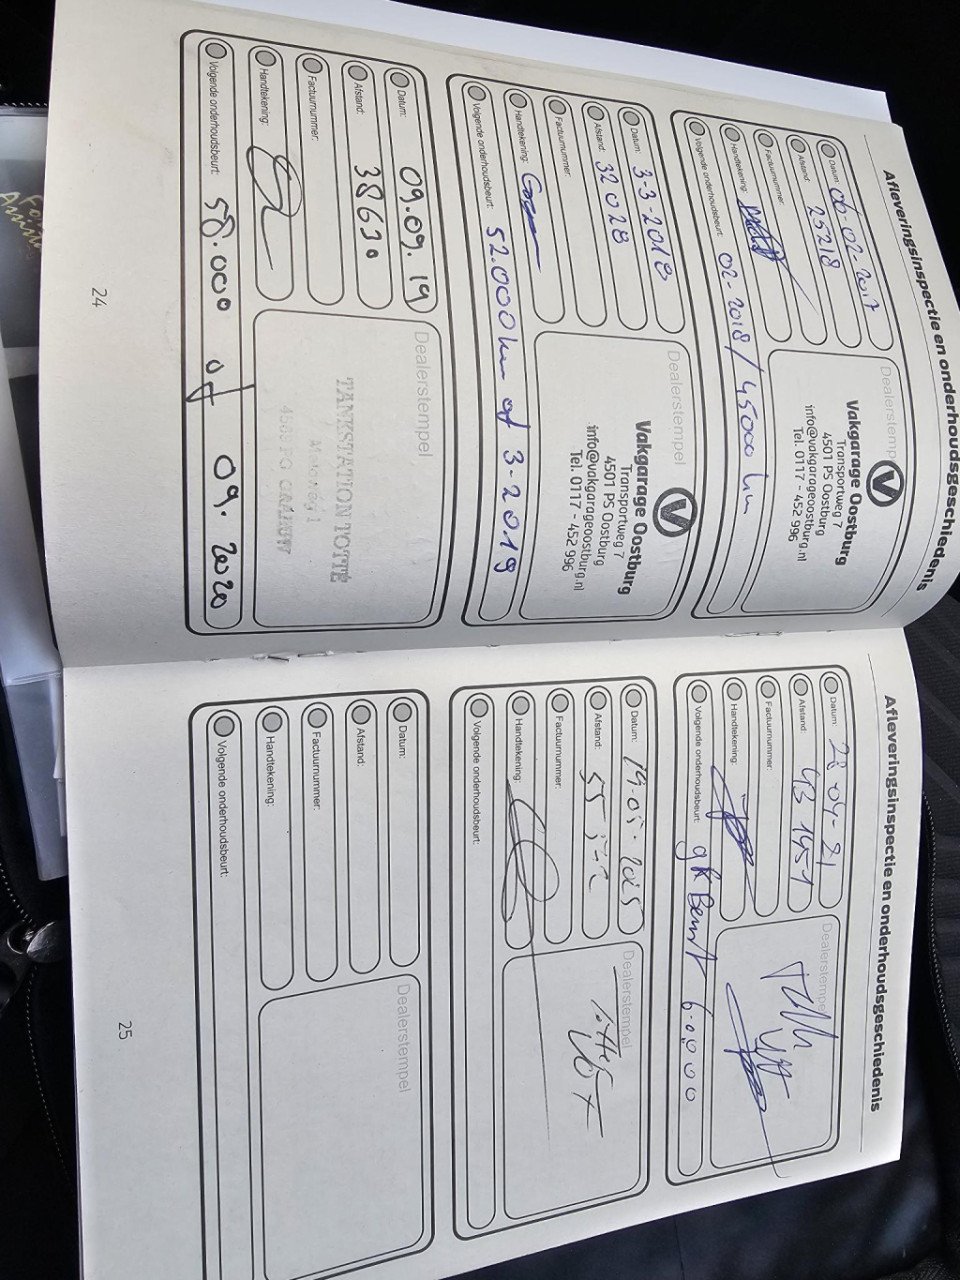 Afleveringsinspectie en onderhoudsgeschiedenis
Datum: 06-02-2017
Afstand: 25218
Factuurnummer:
Handtekening:
Volgende onderhoudsbeurt: 02-2018/45000 km
Dealerstempel
Vakgarage Oostburg
Transportweg 7
4501 PS Oostburg
info@vakgarageoostburg.nl
Tel. 0117 - 452 996
Datum: 3-3-2018
Afstand: 32028
Factuurnummer:
Handtekening:
Volgende onderhoudsbeurt: 52.000km of 3-2019
Dealerstempel
Vakgarage Oostburg
Transportweg 7
4501 PS Oostburg
info@vakgarageoostburg.nl
Tel. 0117 - 452 996
Datum: 09.09.19
Afstand: 38630
Factuurnummer:
Handtekening:
Volgende onderhoudsbeurt: 58.000 of 09.2020
Dealerstempel
TANKSTATION TOTTÉ
24
Afleveringsinspectie en onderhoudsgeschiedenis
Datum: 28-04-21
Afstand: 43 1451
Factuurnummer:
Handtekening:
Volgende onderhoudsbeurt: gR Beurt 60.000
Dealerstempel
Datum: 19.05.2025
Afstand:
Factuurnummer:
Handtekening:
Volgende onderhoudsbeurt:
Dealerstempel
Datum:
Afstand:
Factuurnummer:
Handtekening:
Volgende onderhoudsbeurt:
Dealerstempel
25